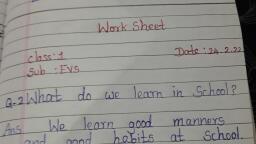 Work Sheet
Class:1
Date:24.2.22
Sub : EVS
Q.2 What do we learn in School?
Ans We learn good manners
and good habits at School.